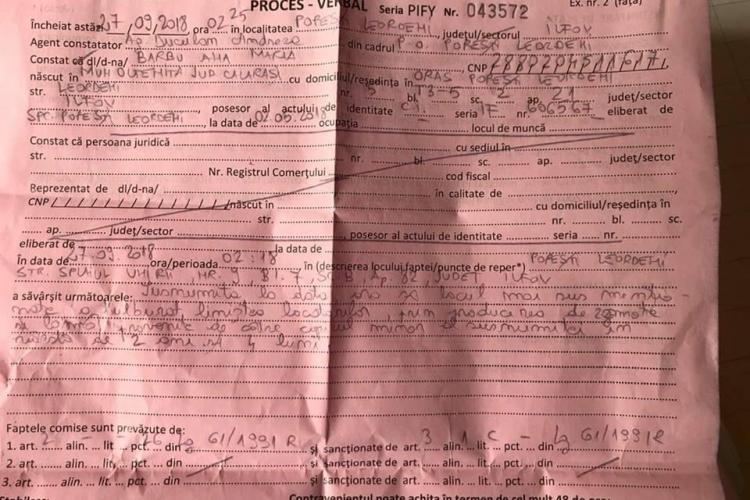 PROCES - VERBAL Seria PIFY Nr. 043572 Ex. nr. 2 (fața)
Încheiat astăzi 27/09/2018, ora 02 25 în localitatea POPEȘTI LEORDENI, județul/sectorul ILFOV
Agent constatator din cadrul P.O. POPEȘTI LEORDENI
Constat că dl/d-na/ BARBU ANA MARIA CNP
născut în JUD CALARASI cu domiciliul/reședința în ORAS POPESTI LEORDENI
str. LEORDENI nr. 5 bl. T3-5 sc. 2 ap. 21 județ/sector
ILFOV posesor al actului de identitate seria nr. 606567 eliberat de
SPC POPESTI LEORDENI, la data de 02.05.201 ocupația locul de muncă
Constat că persoana juridică cu sediul în
str. nr. bl. sc. ap. județ/sector
Nr. Registrul Comerțului cod fiscal
Reprezentat de dl/d-na/ în calitate de
CNP / / / / / / / / / / / / / născut în cu domiciliul/reședința în
str. nr. bl. sc.
ap. județ/sector posesor al actului de identitate seria nr.
eliberat de la data de
În data de 27.09.2018 ora/perioada 02:18 în (descrierea locului faptei/puncte de reper*) POPEȘTI LEORDENI
STR. SPLAIUL UNIRII, NR. 9 Bl. 7, Sc. B, Ap. 82, JUDET ILFOV
a săvârșit următoarele: Susnumita la data și locul mai sus mentio-
nate a tulburat linistea locatarilor, prin producerea de zgomote
de catre copilul minor al susnumitei în
de 2 ani și 4 luni
Faptele comise sunt prevăzute de:
1. art. 2 alin. lit. pct. 26 din Lg 61/1991 R și sancționate de art. 3 alin. 1 lit. c pct. - din Lg 61/1991R
2. art. alin. lit. pct. din și sancționate de art. alin. lit. pct. din
3. art. alin. lit. pct. din și sancționate de art. alin. lit. pct. din
Contravenientul poate achita în termen de cel mult 48 de